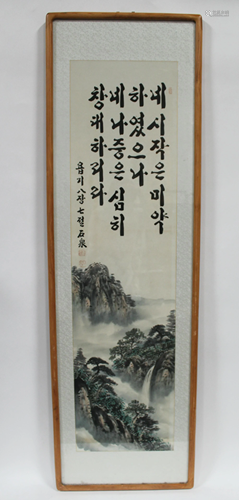 네 시작은 미약
하였으나
네 나중은 심히
창대하리라
욥기 八장 七절 石泉